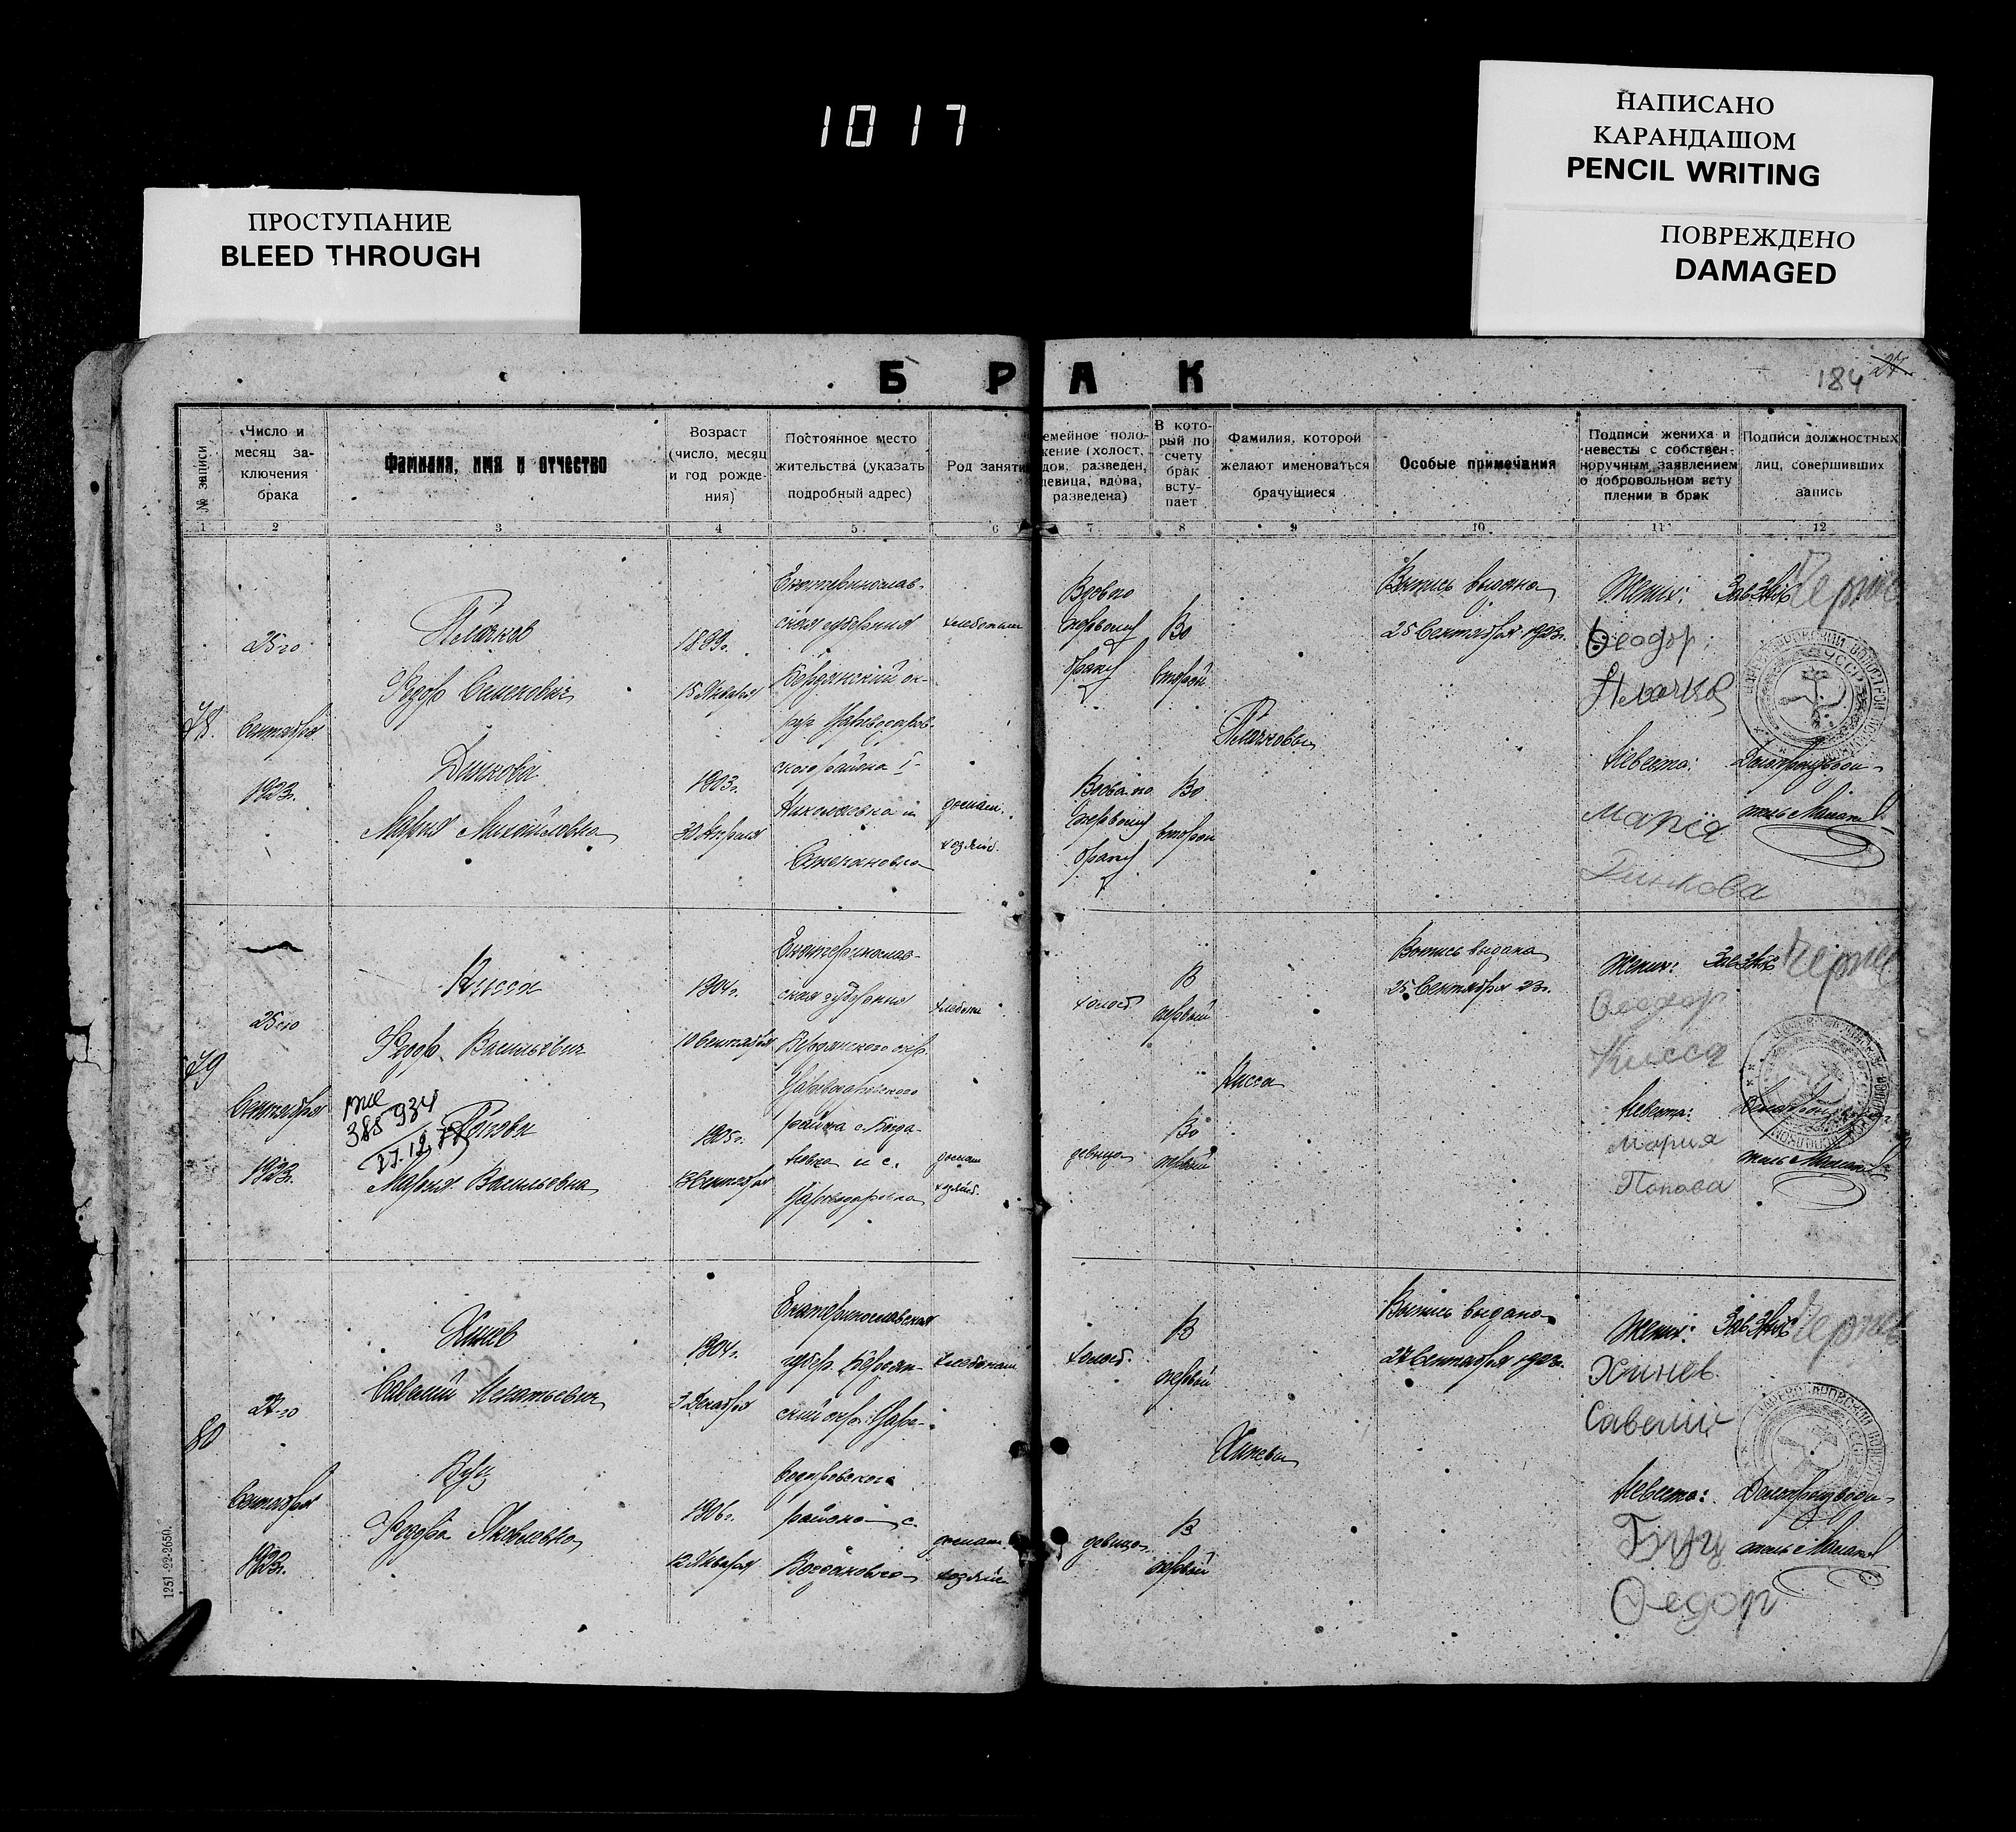 1017
НАПИСАНО
КАРАНДАШОМ
PENCIL WRITING
ПОВРЕЖДЕНО
DAMAGED
ПРОСТУПАНИЕ
BLEED THROUGH
БРАК
184 27.
№ записи
Число и
месяц за-
ключения
брака
Фамилия, имя и отчество
Возраст
(число, месяц
и год рожде-
ния)
Постоянное место
жительства (указать
подробный адрес)
Род заняти
емейное поло-
жение (холост,
дов. разведен,
девица, вдова,
разведена)
В кото-
рый по
счету
брак
всту-
пает
Фамилия, которой
желают именоваться
брачущиеся
Особые примечания
Подписи жениха и
невесты с собствен-
норучным заявлением
о добровольном всту
плении в брак
Подписи должностных
лиц, совершивших
запись
1 2 3 4 5 6 7 8 9 10 11 12
78.
25-го
Сентября
1923г.
Плачков
Федор
Динкова
Мария Михайловна
1889г.
15 Января
1903г.
30 Апреля
Екатеринослав-
ская губерния
Бердянский ок-
руг Цареводаров-
ского района I-
Николаевка и
Степановка
хлебопаш
домаш.
хозяйс.
Вдовец по
первому
браку
Во
второй
Вдова по
первому
браку
Во
второй
Плачковы
Выпись выдана
25 Сентября 1923г.
Жених:
Феодор
Плачков
Невеста:
Мария
Динкова
Зав ЗАГС
Делопроизводи-
тель
79
25-го
Сентября
1923г.
Кисса
Федор Васильевич
385934
Попова
Мария Васильевна
1904г.
10 Сентября
1905г.
Екатеринослав-
ская губерния
Бердянского окр.
Цареводаровского
района с. Богда-
новка и с.
Цареводаровка
хлебопаш
домаш
хозяйс.
холост
В
первый
девица
Во
первый
Кисса
Выпись выдана
25 Сентября 23г.
Жених:
Феодор
Кисса
Невеста:
Мария
Попова
Зав ЗАГС
тель
80
27-го
Сентября
1923г.
Хинев
Савелий Игнатьевич
Буц
Федора Яковлевна
1904г.
3 Декабря
1906г.
12 Января
Екатеринославская
губер. Бердян-
ский окр. Царе-
водаровского
района с.
Богдановка
хлебопаш
домаш.
хозяйс.
холост.
В
первый
девица
В
первый
Хиневы
Выпись выдана
27 Сентября 1923г.
Жених:
Хинев
Савелий
Невеста:
Буц
Федор
Зав ЗАГС
Делопроизводи-
тель
1251-22-2650.